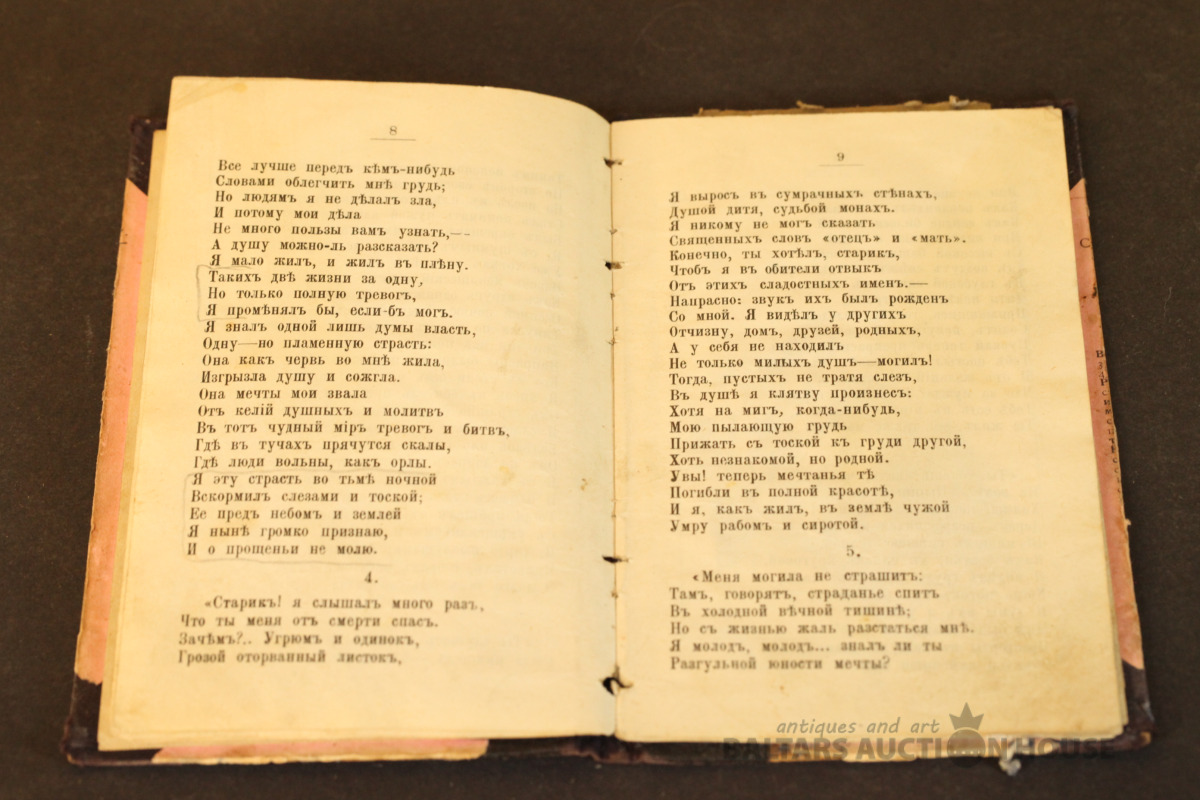 8
Все лучше передъ кѣмъ-нибудь
Словами облегчить мнѣ грудь;
Но людямъ я не дѣлалъ зла,
И потому мои дѣла
Не много пользы вамъ узнать,—
А душу можно-ль разсказать?
Я мало жилъ, и жилъ въ плѣну.
Такихъ двѣ жизни за одну,
Но только полную тревогъ,
Я промѣнялъ бы, если-бъ могъ.
Я зналъ одной лишь думы власть,
Одну—но пламенную страсть:
Она какъ червь во мнѣ жила,
Изгрызла душу и сожгла.
Она мечты мои звала
Отъ келій душныхъ и молитвъ
Въ тотъ чудный міръ тревогъ и битвъ,
Гдѣ въ тучахъ прячутся скалы,
Гдѣ люди вольны, какъ орлы.
Я эту страсть во тьмѣ ночной
Вскормилъ слезами и тоской;
Ее предъ небомъ и землей
Я нынѣ громко признаю,
И о прощеньи не молю.
4.
«Старикъ! я слышалъ много разъ,
Что ты меня отъ смерти спасъ.
Зачѣмъ?.. Угрюмъ и одинокъ,
Грозой оторванный листокъ,
9
Я выросъ въ сумрачныхъ стѣнахъ,
Душой дитя, судьбой монахъ.
Я никому не могъ сказать
Священныхъ словъ «отецъ» и «мать».
Конечно, ты хотѣлъ, старикъ,
Чтобъ я въ обители отвыкъ
Отъ этихъ сладостныхъ именъ.—
Напрасно: звукъ ихъ былъ рожденъ
Со мной. Я видѣлъ у другихъ
Отчизну, домъ, друзей, родныхъ,
А у себя не находилъ
Не только милыхъ душъ—могилъ!
Тогда, пустыхъ не тратя слезъ,
Въ душѣ я клятву произнесъ:
Хотя на мигъ, когда-нибудь,
Мою пылающую грудь
Прижать съ тоской къ груди другой,
Хоть незнакомой, но родной.
Увы! теперь мечтанья тѣ
Погибли въ полной красотѣ,
И я, какъ жилъ, въ землѣ чужой
Умру рабомъ и сиротой.
5.
«Меня могила не страшитъ:
Тамъ, говорятъ, страданье спитъ
Въ холодной вѣчной тишинѣ;
Но съ жизнью жаль разстаться мнѣ.
Я молодъ, молодъ... зналъ ли ты
Разгульной юности мечты?
antiques and art
BALTARS AUCTION HOUSE